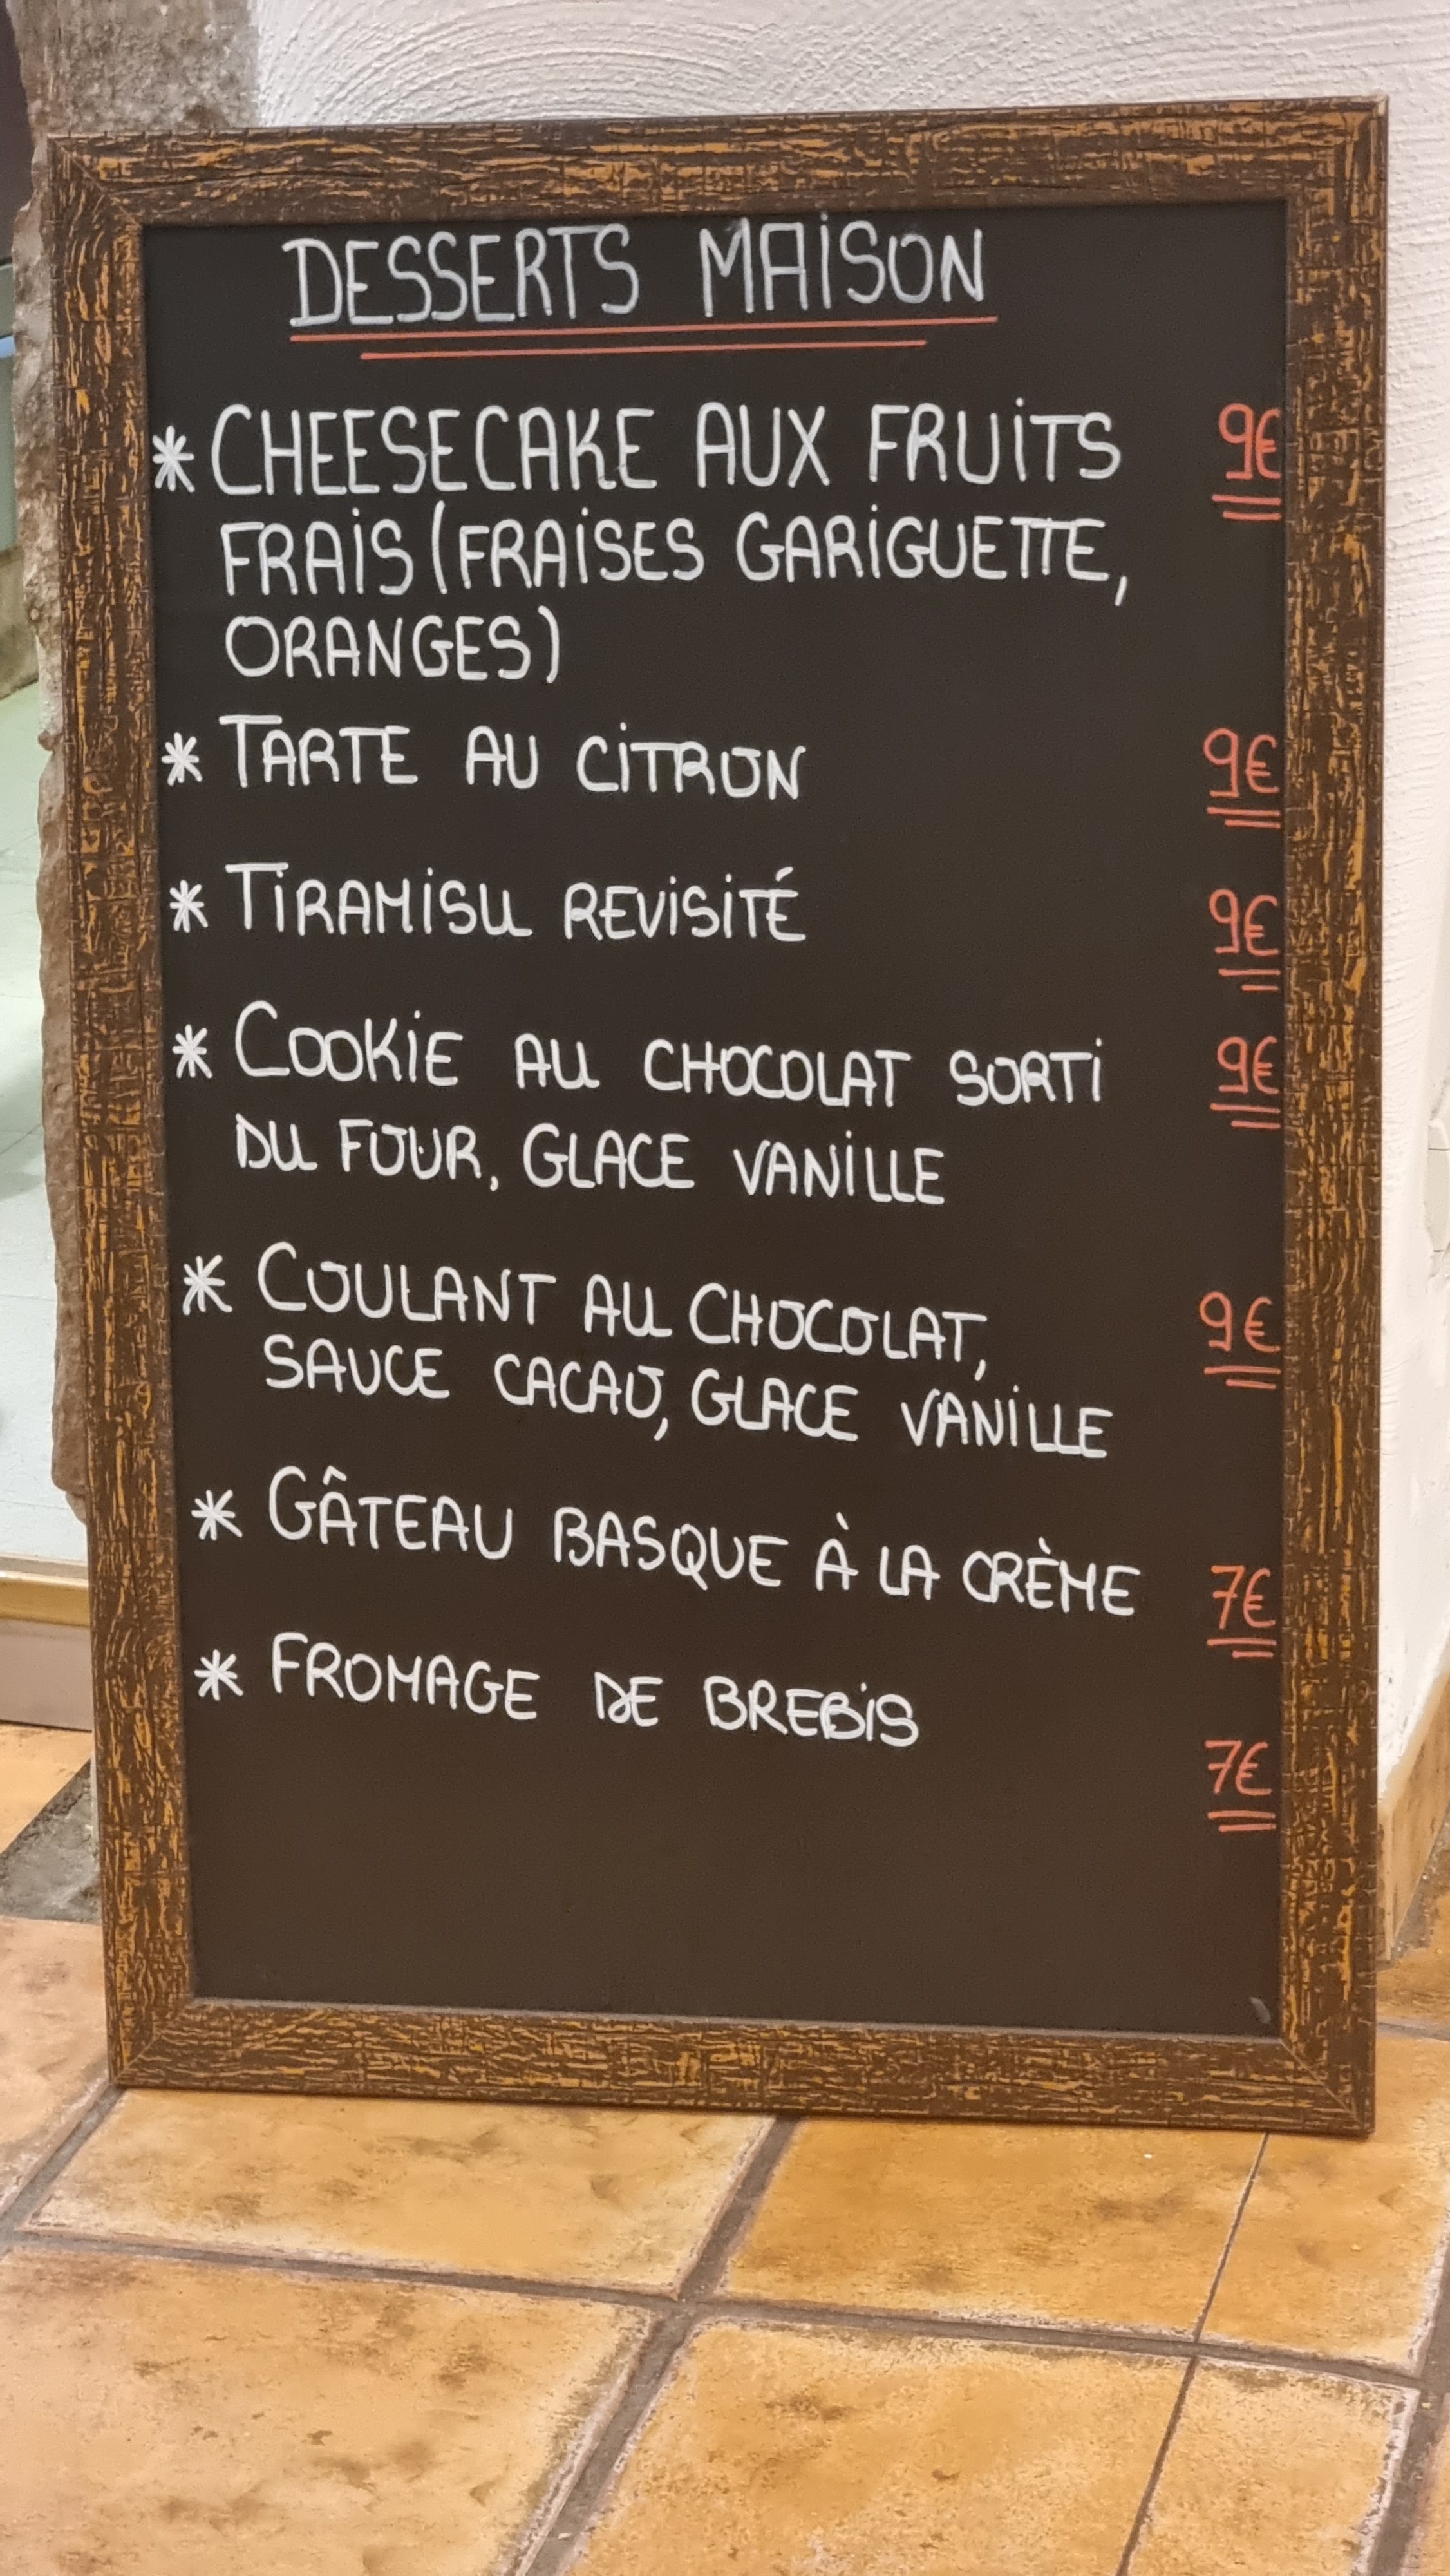 DESSERTS MAiSON
* CHEESECAKE AUX FRUiTS 9€
FRAiS (FRAiSES GARiGUETTE,
ORANGES)
* TARTE AU CiTRON 9€
* TiRAMiSU REViSiTÉ 9€
* COOKiE AU CHOCOLAT SORTi 9€
DU FOUR, GLACE VANiLLE
* COULANT AU CHOCOLAT, 9€
SAUCE CACAO, GLACE VANiLLE
* GÂTEAU BASQUE À LA CRÈME 7€
* FROMAGE DE BREBiS 7€